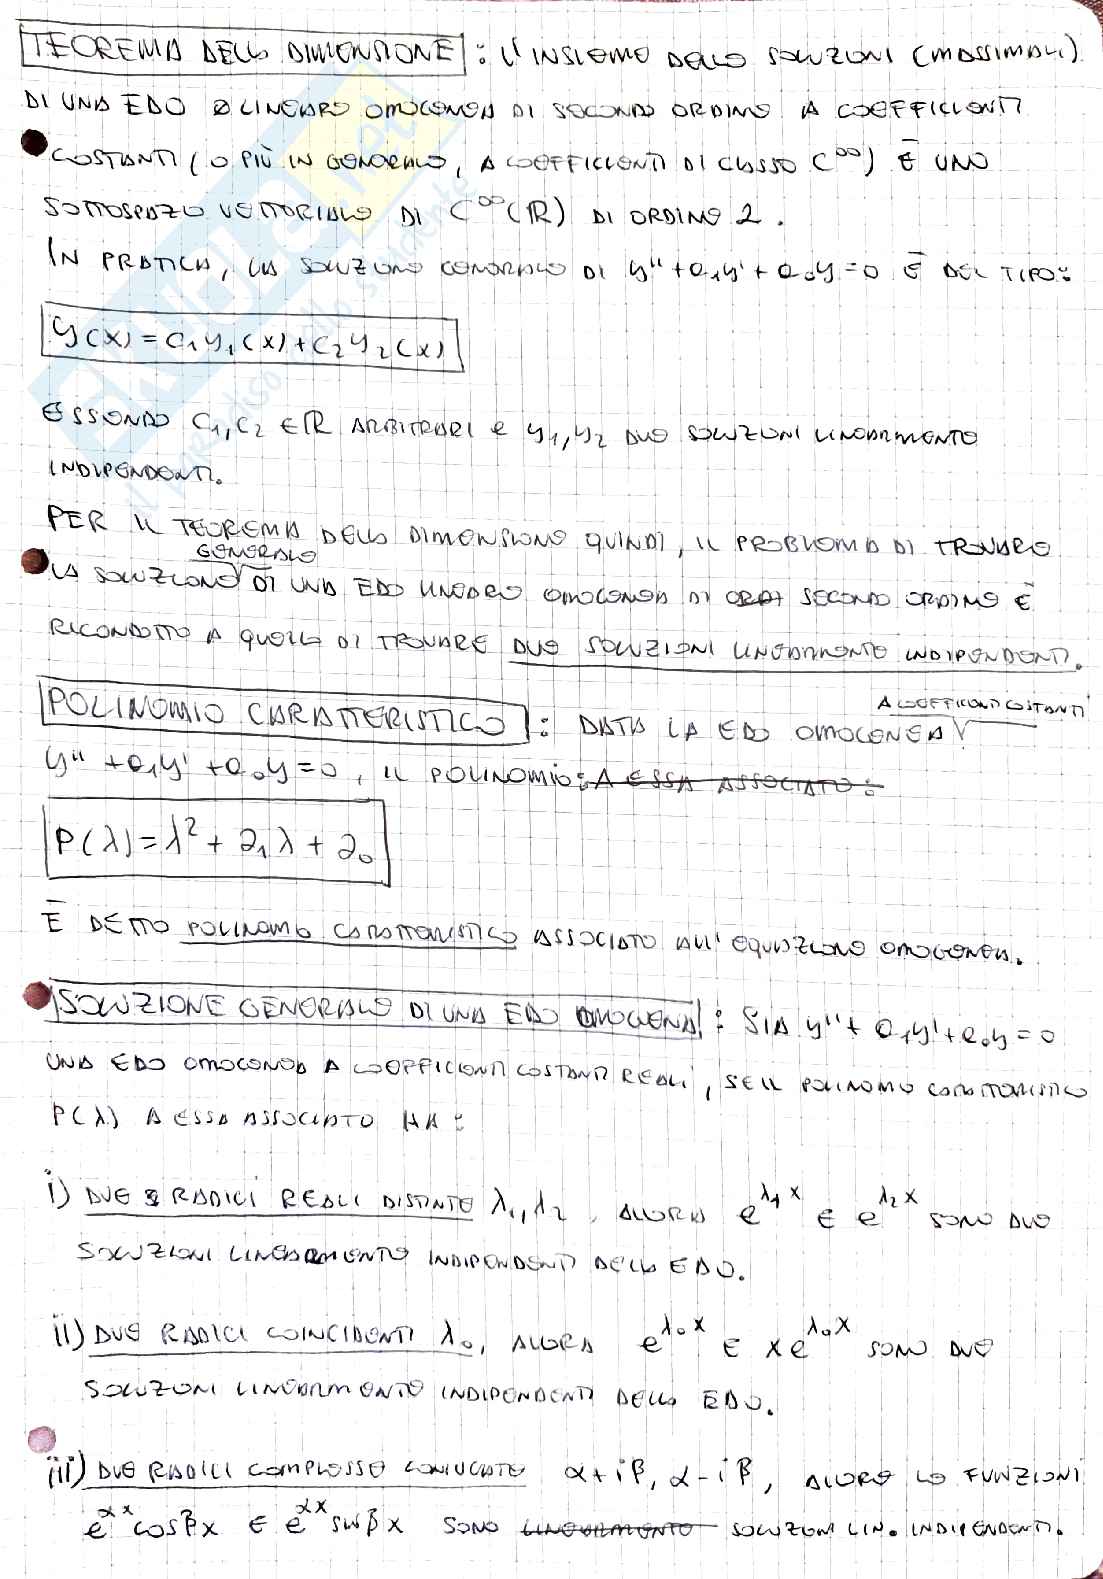 TEOREMA DELLA DIMENSIONE: L'INSIEME DELLE SOLUZIONI (MASSIMALI)
DI UNA EDO LINEARE OMOGENEA DI SECONDO ORDINE A COEFFICIENTI
COSTANTI (O PIÙ IN GENERALE, A COEFFICIENTI DI CLASSE C^∞) È UNO
SOTTOSPAZIO VETTORIALE DI C^∞(ℝ) DI ORDINE 2.
IN PRATICA, LA SOLUZIONE GENERALE DI y'' + a₁y' + a₀y = 0 È DEL TIPO:
y(x) = c₁y₁(x) + c₂y₂(x)
ESSENDO c₁, c₂ ∈ ℝ ARBITRARI E y₁, y₂ DUE SOLUZIONI LINEARMENTE
INDIPENDENTI.
PER IL TEOREMA DELLA DIMENSIONE QUINDI, IL PROBLEMA DI TROVARE
GENERALE
LA SOLUZIONE DI UNA EDO LINEARE OMOGENEA DI SECONDO ORDINE È
RICONDOTTO A QUELLO DI TROVARE DUE SOLUZIONI LINEARMENTE INDIPENDENTI.
A COEFFICIENTI COSTANTI
POLINOMIO CARATTERISTICO: DATA LA EDO OMOGENEA
y'' + a₁y' + a₀y = 0, IL POLINOMIO: A ESSA ASSOCIATO:
P(λ) = λ² + a₁λ + a₀
È DETTO POLINOMIO CARATTERISTICO ASSOCIATO ALL'EQUAZIONE OMOGENEA.
SOLUZIONE GENERALE DI UNA EDO OMOGENEA: SIA y'' + a₁y' + a₀y = 0
UNA EDO OMOGENEA A COEFFICIENTI COSTANTI REALI, SE IL POLINOMIO CARATTERISTICO
P(λ) A ESSA ASSOCIATO HA:
i) DUE RADICI REALI DISTINTE λ₁, λ₂, ALLORA e^{λ₁x} E e^{λ₂x} SONO DUE
SOLUZIONI LINEARMENTE INDIPENDENTI DELLA EDO.
ii) DUE RADICI COINCIDENTI λ₀, ALLORA e^{λ₀x} E xe^{λ₀x} SONO DUE
SOLUZIONI LINEARMENTE INDIPENDENTI DELLA EDO.
iii) DUE RADICI COMPLESSE CONIUGATE α+iβ, α-iβ, ALLORA LE FUNZIONI
e^{αx}cosβx E e^{αx}sinβx SONO LINEARMENTE SOLUZIONI LIN. INDIPENDENTI.